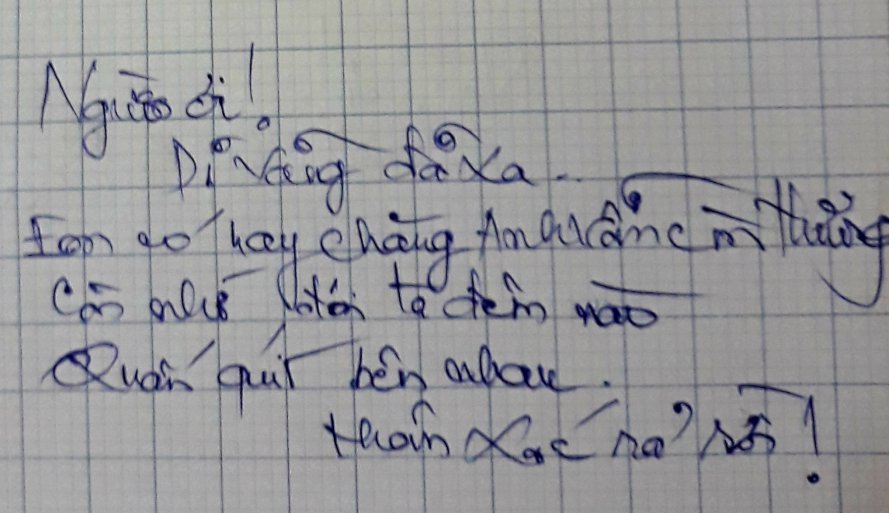 Người ơi!
Dĩ vãng đã xa..
Em có hay chăng Ân còn tưởng
Còn nhớ tới ta đêm nào
Quấn quít bên nhau.
thân xác rã rời!